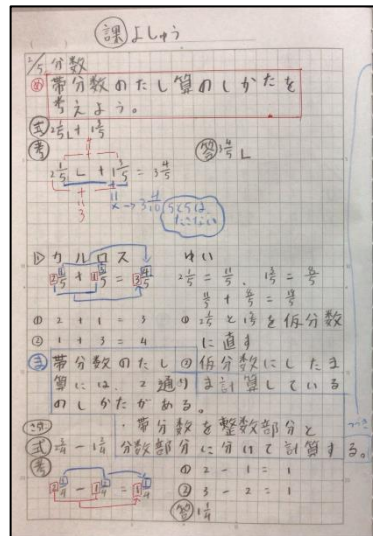 課 よしゅう
2/5 分数
め 帯分数のたし算のしかたを
考えよう。
式 2 1/5 L + 1 3/5
考
答 3 4/5 L
2 1/5 L + 1 3/5 = 3 4/5
3
3 4/10
5と5は
たさない
カルロス
2 1/5 + 1 3/5 = 3 4/5
① 2 + 1 = 3
② 1 + 3 = 4
ゆい
2 1/5 = 11/5 , 1 3/5 = 8/5
11/5 + 8/5 = 19/5
① 2 1/5 と 1 3/5 を仮分数
に直す
② 仮分数にしたま
ま計算している
ま 帯分数のたし
算には、2通り
のしかたがある。
・帯分数を整数部分と
分数部分に分けて計算する。
式 2 3/4 - 1 2/4
考
2 3/4 - 1 2/4 = 1 1/4
① 2 - 1 = 1
② 3 - 2 = 1
答 1 1/4